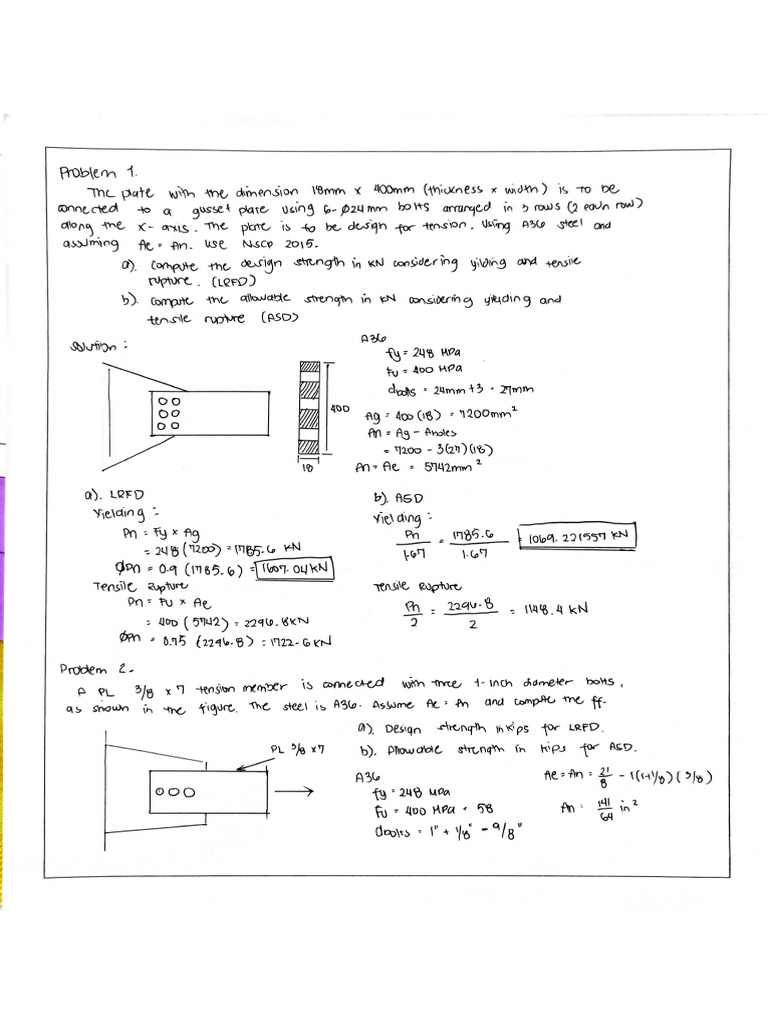 Problem 1.
The plate with the dimension 18mm x 400mm (thickness x width) is to be
connected to a gusset plate using 6-Ø24mm bolts arranged in 3 rows (2 each row)
along the x-axis. The plate is to be design for tension. Using A36 steel and
assuming Ae = An. use NSCP 2015.
a). Compute the design strength in KN considering yilding and tensile
rupture. (LRFD)
b). Compute the allowable strength in KN considering yielding and
tensile rupture (ASD)
Solution:
400
18
A36
fy = 248 MPa
Fu = 400 MPa
dbolts = 24mm + 3 = 27mm
Ag = 400(18) = 7200mm²
An = Ag - Aholes
= 7200 - 3(27)(18)
An = Ae = 5742mm²
a). LRFD
Yielding:
Pn = Fy x Ag
= 248(7200) = 1785.6 KN
ØPn = 0.9(1785.6) = 1607.04KN
Tensile Rupture
Pn = Fu x Ae
= 400(5742) = 2296.8KN
ØPn = 0.75 (2296.8) = 1722.6KN
b). ASD
Yielding:
Pn/1.67 = 1785.6/1.67 = 1069.221557 KN
Tensile Rupture
Pn/2 = 2296.8/2 = 1148.4 KN
Problem 2.
A PL 3/8 x 7 tension member is connected with three 1-inch diameter bolts,
as shown in the figure. The steel is A36. Assume Ae = An and compute the ff.
a). Design strength in kips for LRFD.
b). Allowable strength in kips for ASD.
PL 3/8 x7
A36
fy = 248 MPa
Fu = 400 MPa = 58
dbolts = 1" + 1/8" - 9/8"
Ae = An = 21/8 - 1(1+1/8)(3/8)
An = 141/64 in²